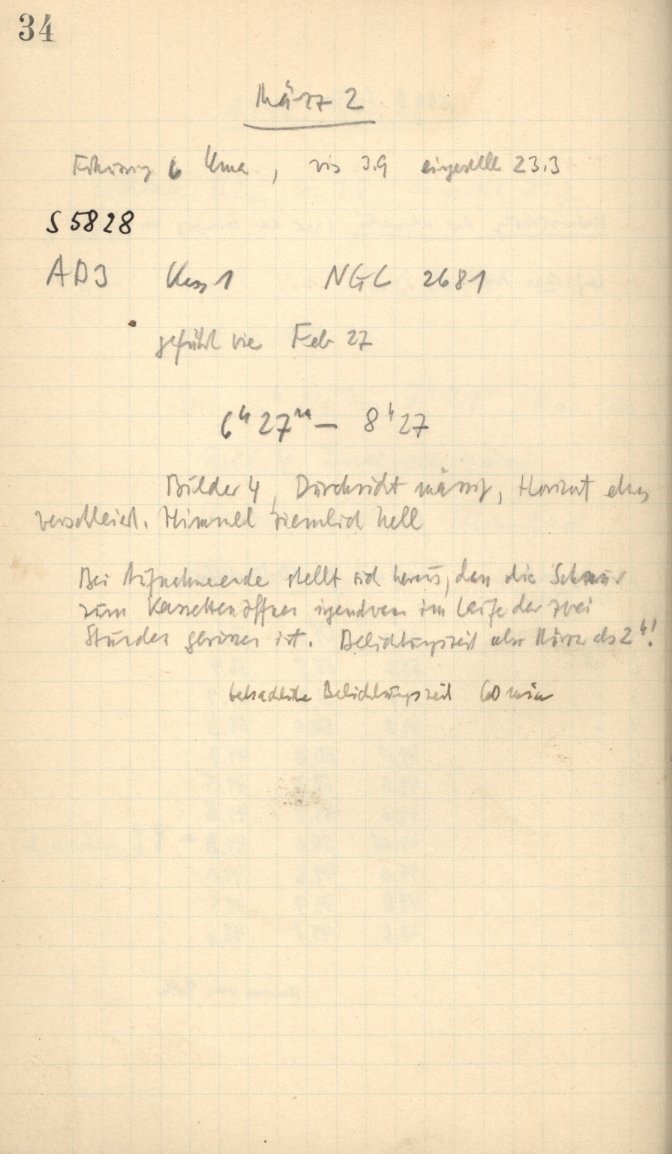 34
März 2
Fokussierung 6 Uma, vis 3.9 eingestellt 23.3
S 5828
AD3 Klass 1 NGC 2681
geführt wie Feb 27
6ʰ 27ᵐ – 8ʰ 27
Bilder 4, Durchsicht mässig, Horizont etwas
verschleiert. Himmel ziemlich hell
Bei Aufnahmeende stellt sich heraus, dass die Schnur
zum Kassettenöffner irgendwann im Laufe der zwei
Stunden gerissen ist. Belichtungszeit also kürzer als 2ʰ!
Belichtungszeit 60 min